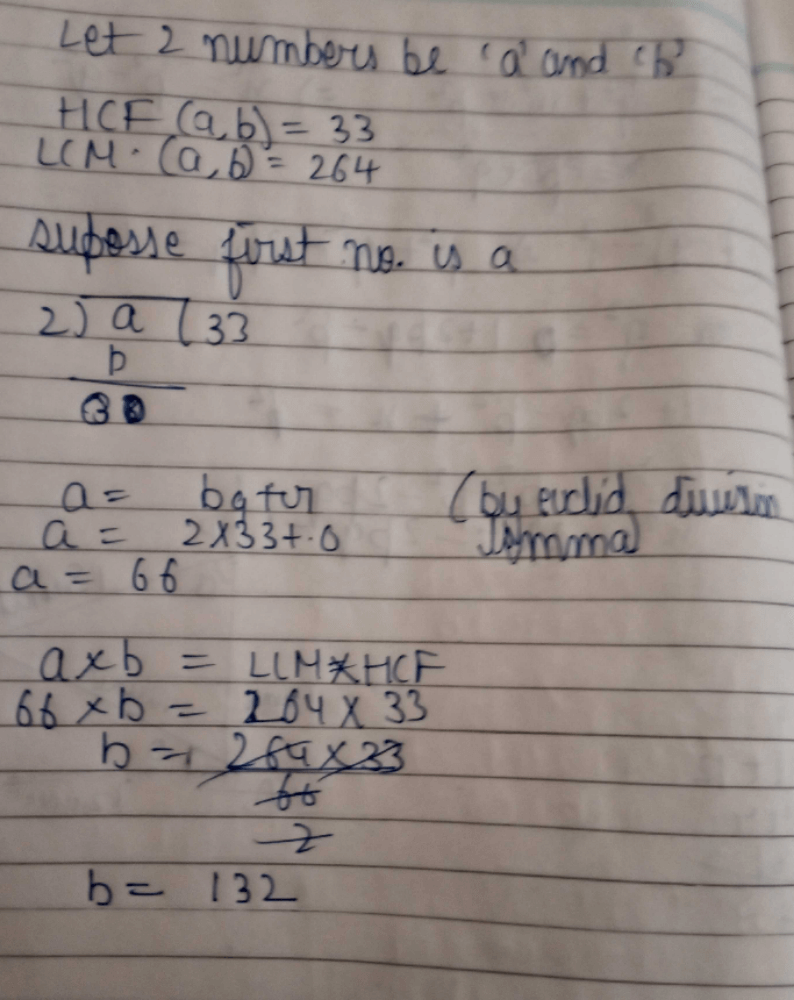 Let 2 numbers be 'a' and 'b'
HCF (a,b) = 33
LCM · (a,b) = 264
supposse first no. is a
2) a (33
b
a = bq+r (by euclid division
a = 2×33+·0 lemma)
a = 66
a×b = LCM×HCF
66 ×b = 264 × 33
b = 264×33
66
2
b = 132